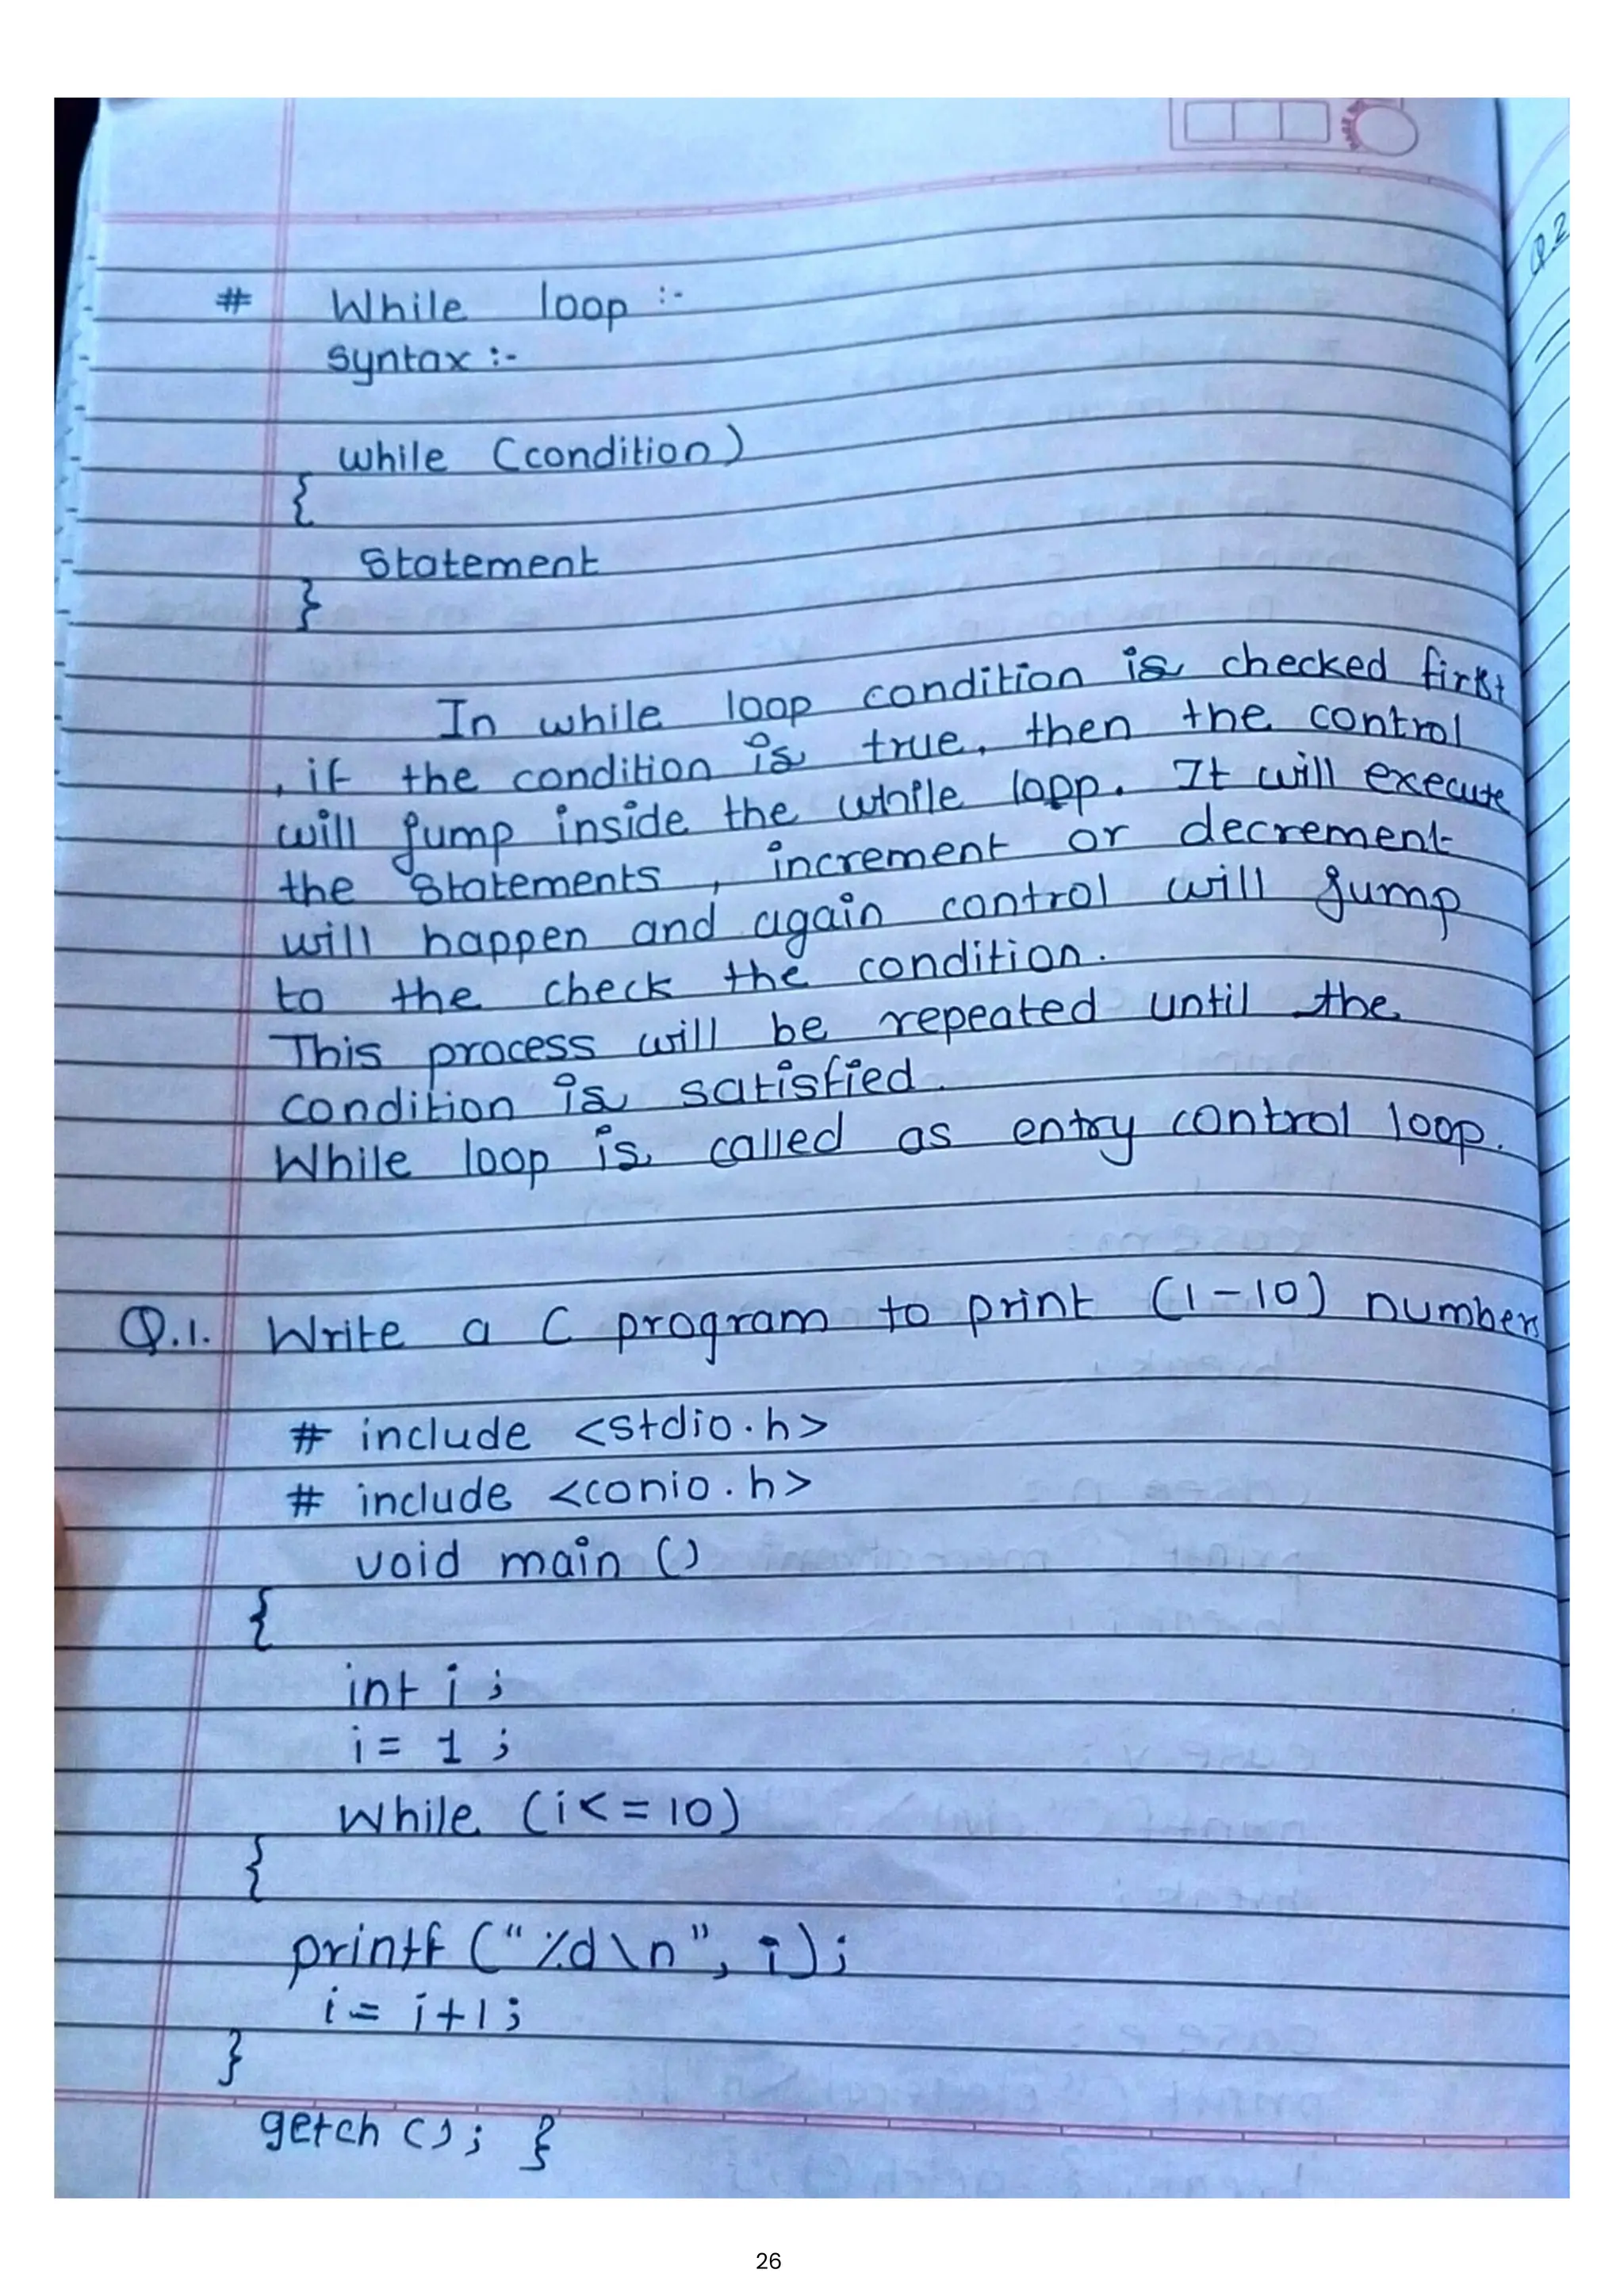 # While loop :-
Syntax :-
while (condition)
{
Statement
}
In while loop condition is checked first
, if the condition is true, then the control
will jump inside the while loop. It will execute
the statements, increment or decrement
will happen and again control will jump
to the check the condition.
This process will be repeated until the
condition is satisfied.
While loop is called as entry control loop.
Q.1. Write a C program to print (1-10) numbers
# include <stdio.h>
# include <conio.h>
void main ()
{
int i ;
i = 1 ;
While (i<=10)
{
printf ("%d\n", i);
i = i+1 ;
}
getch (); }
Q 2
26